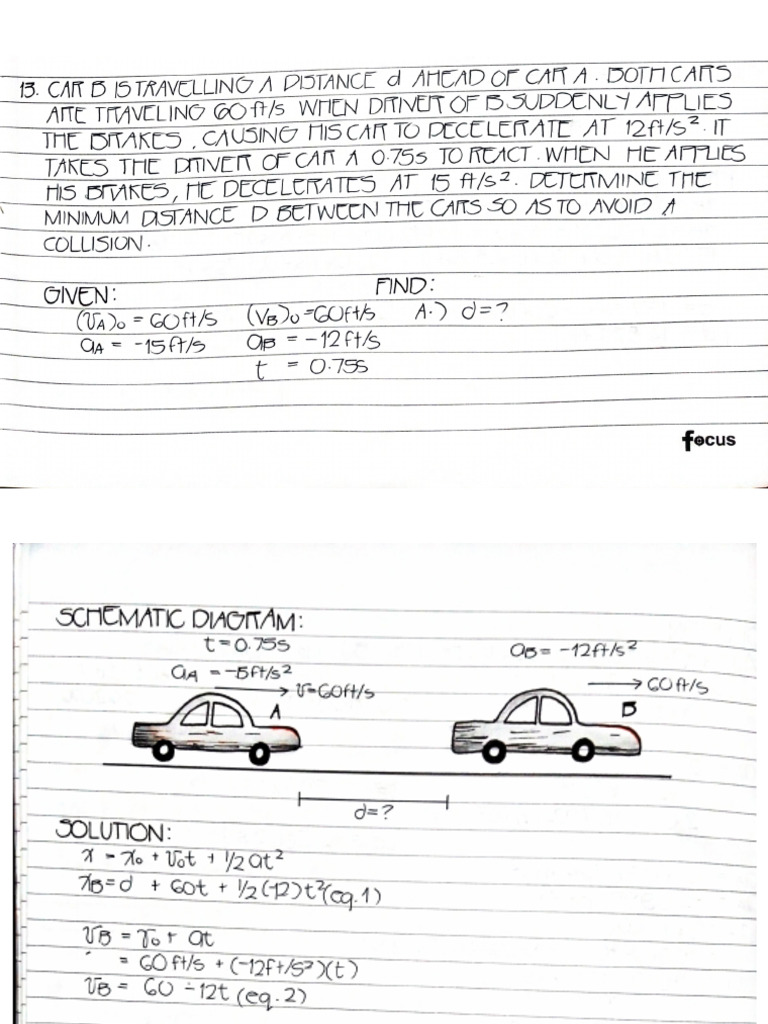 13. CAR B IS TRAVELLING A DISTANCE d AHEAD OF CAR A. BOTH CARS
ARE TRAVELING 60 ft/s WHEN DRIVER OF B SUDDENLY APPLIES
THE BRAKES, CAUSING HIS CAR TO DECELERATE AT 12ft/s². IT
TAKES THE DRIVER OF CAR A 0.75s TO REACT. WHEN HE APPLIES
HIS BRAKES, HE DECELERATES AT 15 ft/s². DETERMINE THE
MINIMUM DISTANCE D BETWEEN THE CARS SO AS TO AVOID A
COLLISION.
GIVEN: FIND:
(VA)0 = 60ft/s (VB)0 = 60ft/s A.) d = ?
aA = -15ft/s aB = -12ft/s
t = 0.75s
focus
SCHEMATIC DIAGRAM:
t = 0.75s
aB = -12ft/s²
aA = -15ft/s²
v=60ft/s
60ft/s
A
B
d = ?
SOLUTION:
x = x0 + v0t + 1/2 at²
xB = d + 60t + 1/2 (-12)t² (eq.1)
VB = v0 + at
= 60ft/s + (-12ft/s²)(t)
VB = 60 - 12t (eq.2)